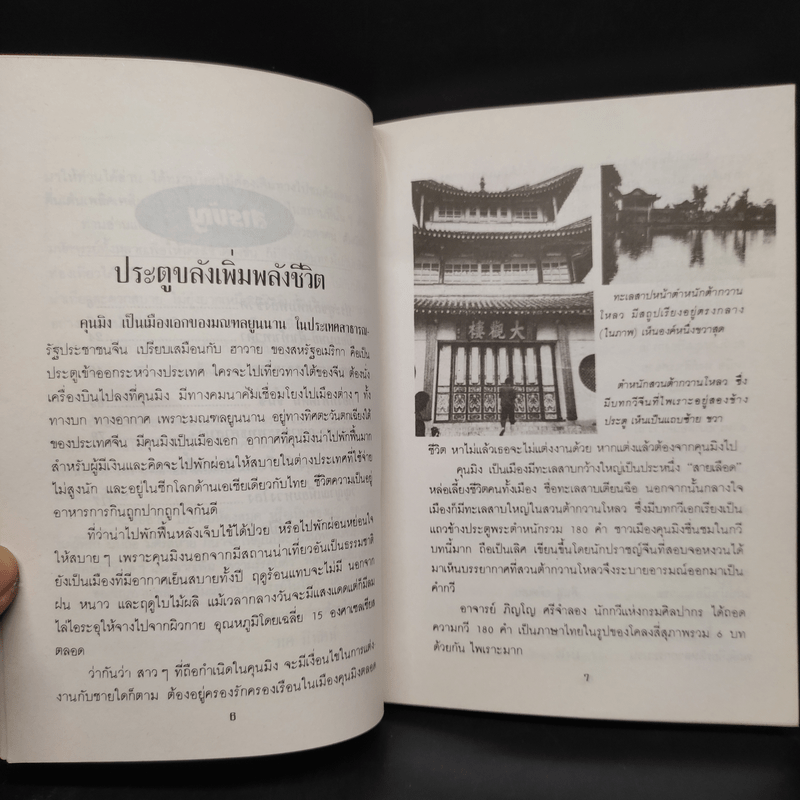 สารบัญ
ประตูขลังเพิ่มพลังชีวิต
คุนมิง เป็นเมืองเอกของมณฑลยูนนาน ในประเทศสาธารณ-
รัฐประชาชนจีน เปรียบเสมือนกับ ฮาวาย ของสหรัฐอเมริกา คือเป็น
ประตูเข้าออกระหว่างประเทศ ใครจะไปเที่ยวทางใต้ของจีน ต้องนั่ง
เครื่องบินไปลงที่คุนมิง มีทางคมนาคมเชื่อมโยงไปเมืองต่างๆ ทั้ง
ทางบก ทางอากาศ เพราะมณฑลยูนนาน อยู่ทางทิศตะวันตกเฉียงใต้
ของประเทศจีน มีคุนมิงเป็นเมืองเอก อากาศที่คุนมิงน่าไปพักฟื้นมาก
สำหรับผู้มีเงินและคิดจะไปพักผ่อนให้สบายในต่างประเทศที่ใช้จ่าย
ไม่สูงนัก และอยู่ในซีกโลกด้านเอเซียเดียวกับไทย ชีวิตความเป็นอยู่
อาหารการกินถูกปากถูกใจกันดี
ที่ว่าน่าไปพักฟื้นหลังเจ็บไข้ได้ป่วย หรือไปพักผ่อนหย่อนใจ
ให้สบายๆ เพราะคุนมิงนอกจากมีสถานน่าเที่ยวอันเป็นธรรมชาติ
ยังเป็นเมืองที่มีอากาศเย็นสบายทั้งปี ฤดูร้อนแทบจะไม่มี นอกจาก
ฝน หนาว และฤดูใบไม้ผลิ แม้เวลากลางวันจะมีแสงแดดแต่ก็มีลม
ไล่ไอระอุให้จางไปจากผิวกาย อุณหภูมิโดยเฉลี่ย 15 องศาเซลเซียส
ตลอด
ว่ากันว่า สาวๆ ที่ถือกำเนิดในคุนมิง จะมีเงื่อนไขในการแต่ง
งานกับชายใดก็ตาม ต้องอยู่ครองรักครองเรือนในเมืองคุนมิงตลอด
6
大觀樓
ทะเลสาปหน้าตำหนักต้ากวาน
โหลว มีสถูปเรียงอยู่ตรงกลาง
(ในภาพ) เห็นองค์หนึ่งขวาสุด
ตำหนักสวนต้ากวานโหลว ซึ่ง
มีบทกวีจีนที่ไพเราะอยู่สองข้าง
ประตู เห็นเป็นแถบซ้าย ขวา
ชีวิต หาไม่แล้วเธอจะไม่แต่งงานด้วย หากแต่งแล้วต้องจากคุนมิงไป
คุนมิง เป็นเมืองมีทะเลสาบกว้างใหญ่เป็นประหนึ่ง “สายเลือด”
หล่อเลี้ยงชีวิตคนทั้งเมือง ชื่อทะเลสาบเตียนฉือ นอกจากนั้นกลางใจ
เมืองก็มีทะเลสาบใหญ่ในสวนต้ากวานโหลว ซึ่งมีบทกวีเอกเรียงเป็น
แถวข้างประตูพระตำหนักรวม 180 คำ ชาวเมืองคุนมิงชื่นชมในกวี
บทนี้มาก ถือเป็นเลิศ เขียนขึ้นโดยนักปราชญ์จีนที่สอบจอหงวนได้
มาเห็นบรรยากาศที่สวนต้ากวานโหลวจึงระบายอารมณ์ออกมาเป็น
คำกวี
อาจารย์ ภิญโญ ศรีจำลอง นักกวีแห่งกรมศิลปากร ได้ถอด
ความกวี 180 คำ เป็นภาษาไทยในรูปของโคลงสี่สุภาพรวม 6 บท
ด้วยกัน ไพเราะมาก
7